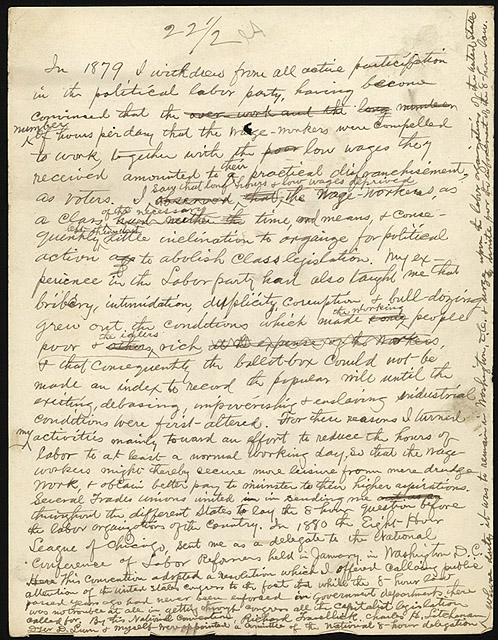 22 1/2
In 1879 I withdrew from all active participation
in the political labor party, having become
convinced that the over work and the long number
number
of hours per day that the wage-workers were compelled
to work, together with the poor low wages they
received amounted to their practical disfranchisement,
as voters. I observed that, the Wage-Workers as
Saw that long hours & low wages deprived
a class, have neither the time, and means, & conse-
of the necessary
quently little inclination to organize for political
action to abolish class legislation. My ex-
perience in the Labor party had also taught me that
bribery, intimidation, duplicity, corruption, & bull-dozing
grew out, the conditions which made the working people
poor & the idlers others, rich at the expense of the Workers,
& that consequently the ballot-box could not be
made an index to record the popular will until the
existing debasing, impoverishing & enslaving industrial
conditions were first altered. For these reasons I turned
my activities mainly toward an effort to reduce the hours of
labor to at least a normal working day, so that the Wage-
workers might thereby secure more leisure from mere drudge
work, & obtain better pay to minister to their higher aspirations.
Several Trades unions united in in sending me
throughout the different States to lay the 8-hour question before
the labor organizations of the Country. In 1880 the Eight-Hour
League of Chicago, sent me as a delegate to the National
Conference of Labor Reformers held in January, in Washington D.C.
This Convention adopted a resolution which I offered calling public
attention of the United States Congress to the fact that while the 8-hour law
passed years ago had never been enforced in Government departments there
was no trouble at all in getting through Congress all the Capitalist legislation
called for. By this National Convention Richard Trevellick, Charles H. Litchman
Dyer D. Lum & Myself were appointed a Committee of the National 8-hour delegation